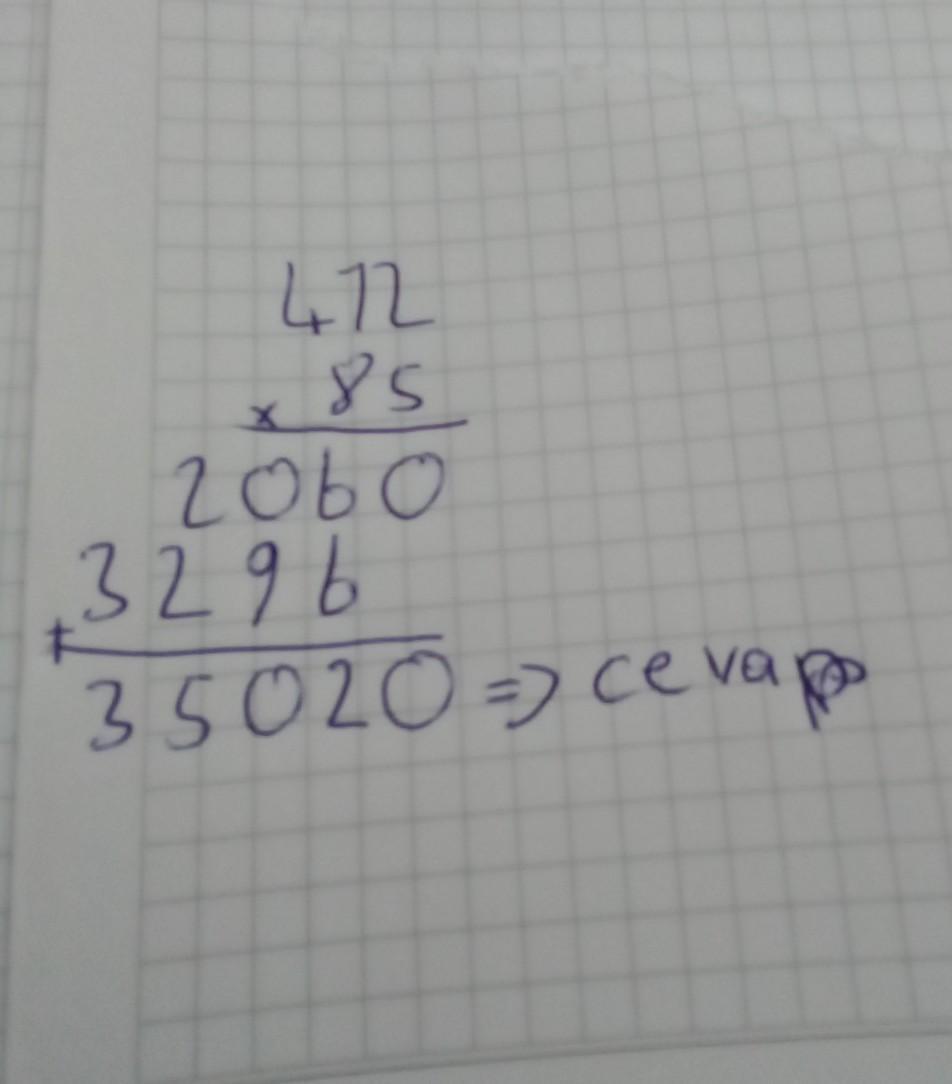 412
x 85
2060
3296
+
35020 => cevap